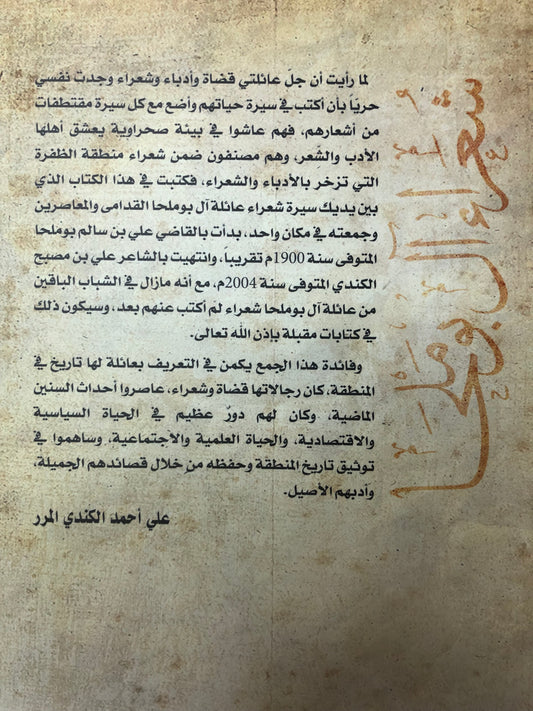 شعراء آل بوملحا
لما رأيت أن جل عائلتي قضاة وأدباء وشعراء وجدت نفسي
حريًا بأن أكتب في سيرة حياتهم وأضع مع كل سيرة مقتطفات
من أشعارهم، فهم عاشوا في بيئة صحراوية يعشق أهلها
الأدب والشعر، وهم مصنفون ضمن شعراء منطقة الظفرة
التي تزخر بالأدباء والشعراء، فكتبت في هذا الكتاب الذي
بين يديك سيرة شعراء عائلة آل بوملحا القدامى والمعاصرين
وجمعته في مكان واحد، بدأت بالقاضي علي بن سالم بوملحا
المتوفى سنة 1900م تقريباً، وانتهيت بالشاعر علي بن مصبح
الكندي المتوفى سنة 2004م، مع أنه مازال في الشباب الباقين
من عائلة آل بوملحا شعراء لم أكتب عنهم بعد، وسيكون ذلك
في كتابات مقبلة بإذن الله تعالى.
وفائدة هذا الجمع يكمن في التعريف بعائلة لها تاريخ في
المنطقة، كان رجالاتها قضاة وشعراء، عاصروا أحداث السنين
الماضية، وكان لهم دورٌ عظيم في الحياة السياسية
والاقتصادية، والحياة العلمية والأجتماعية، وساهموا في
توثيق تاريخ المنطقة وحفظه من خلال قصائدهم الجميلة،
وأدبهم الأصيل.
علي أحمد الكندي المرر